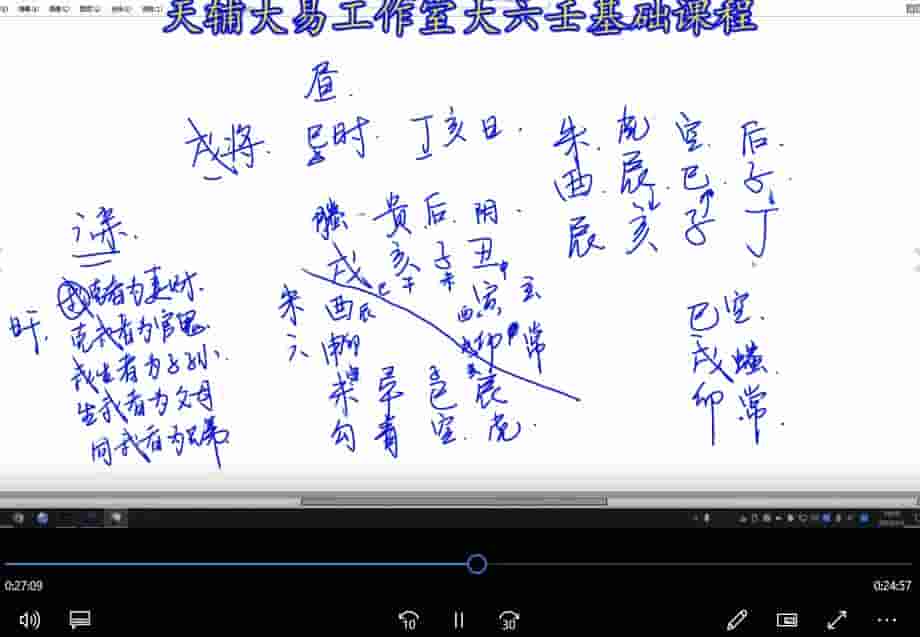 天辅大易工作室大六壬基础课程
昼.
戌将. 巳时. 丁亥日.
朱. 虎 空. 后.
酉. 辰. 巳. 子.
辰 亥 子 丁
螣 贵 后. 阴.
戌 亥 子 丑
朱 酉辰
寅 玄
六
卯 常
巳
勾 青 空. 虎.
巳 空.
戌 螣.
卯 常.
日干,
我克者为妻财.
克我者为官鬼.
我生者为子孙.
生我者为父母
同我者为兄弟
0:27:09
0:24:57
10
30